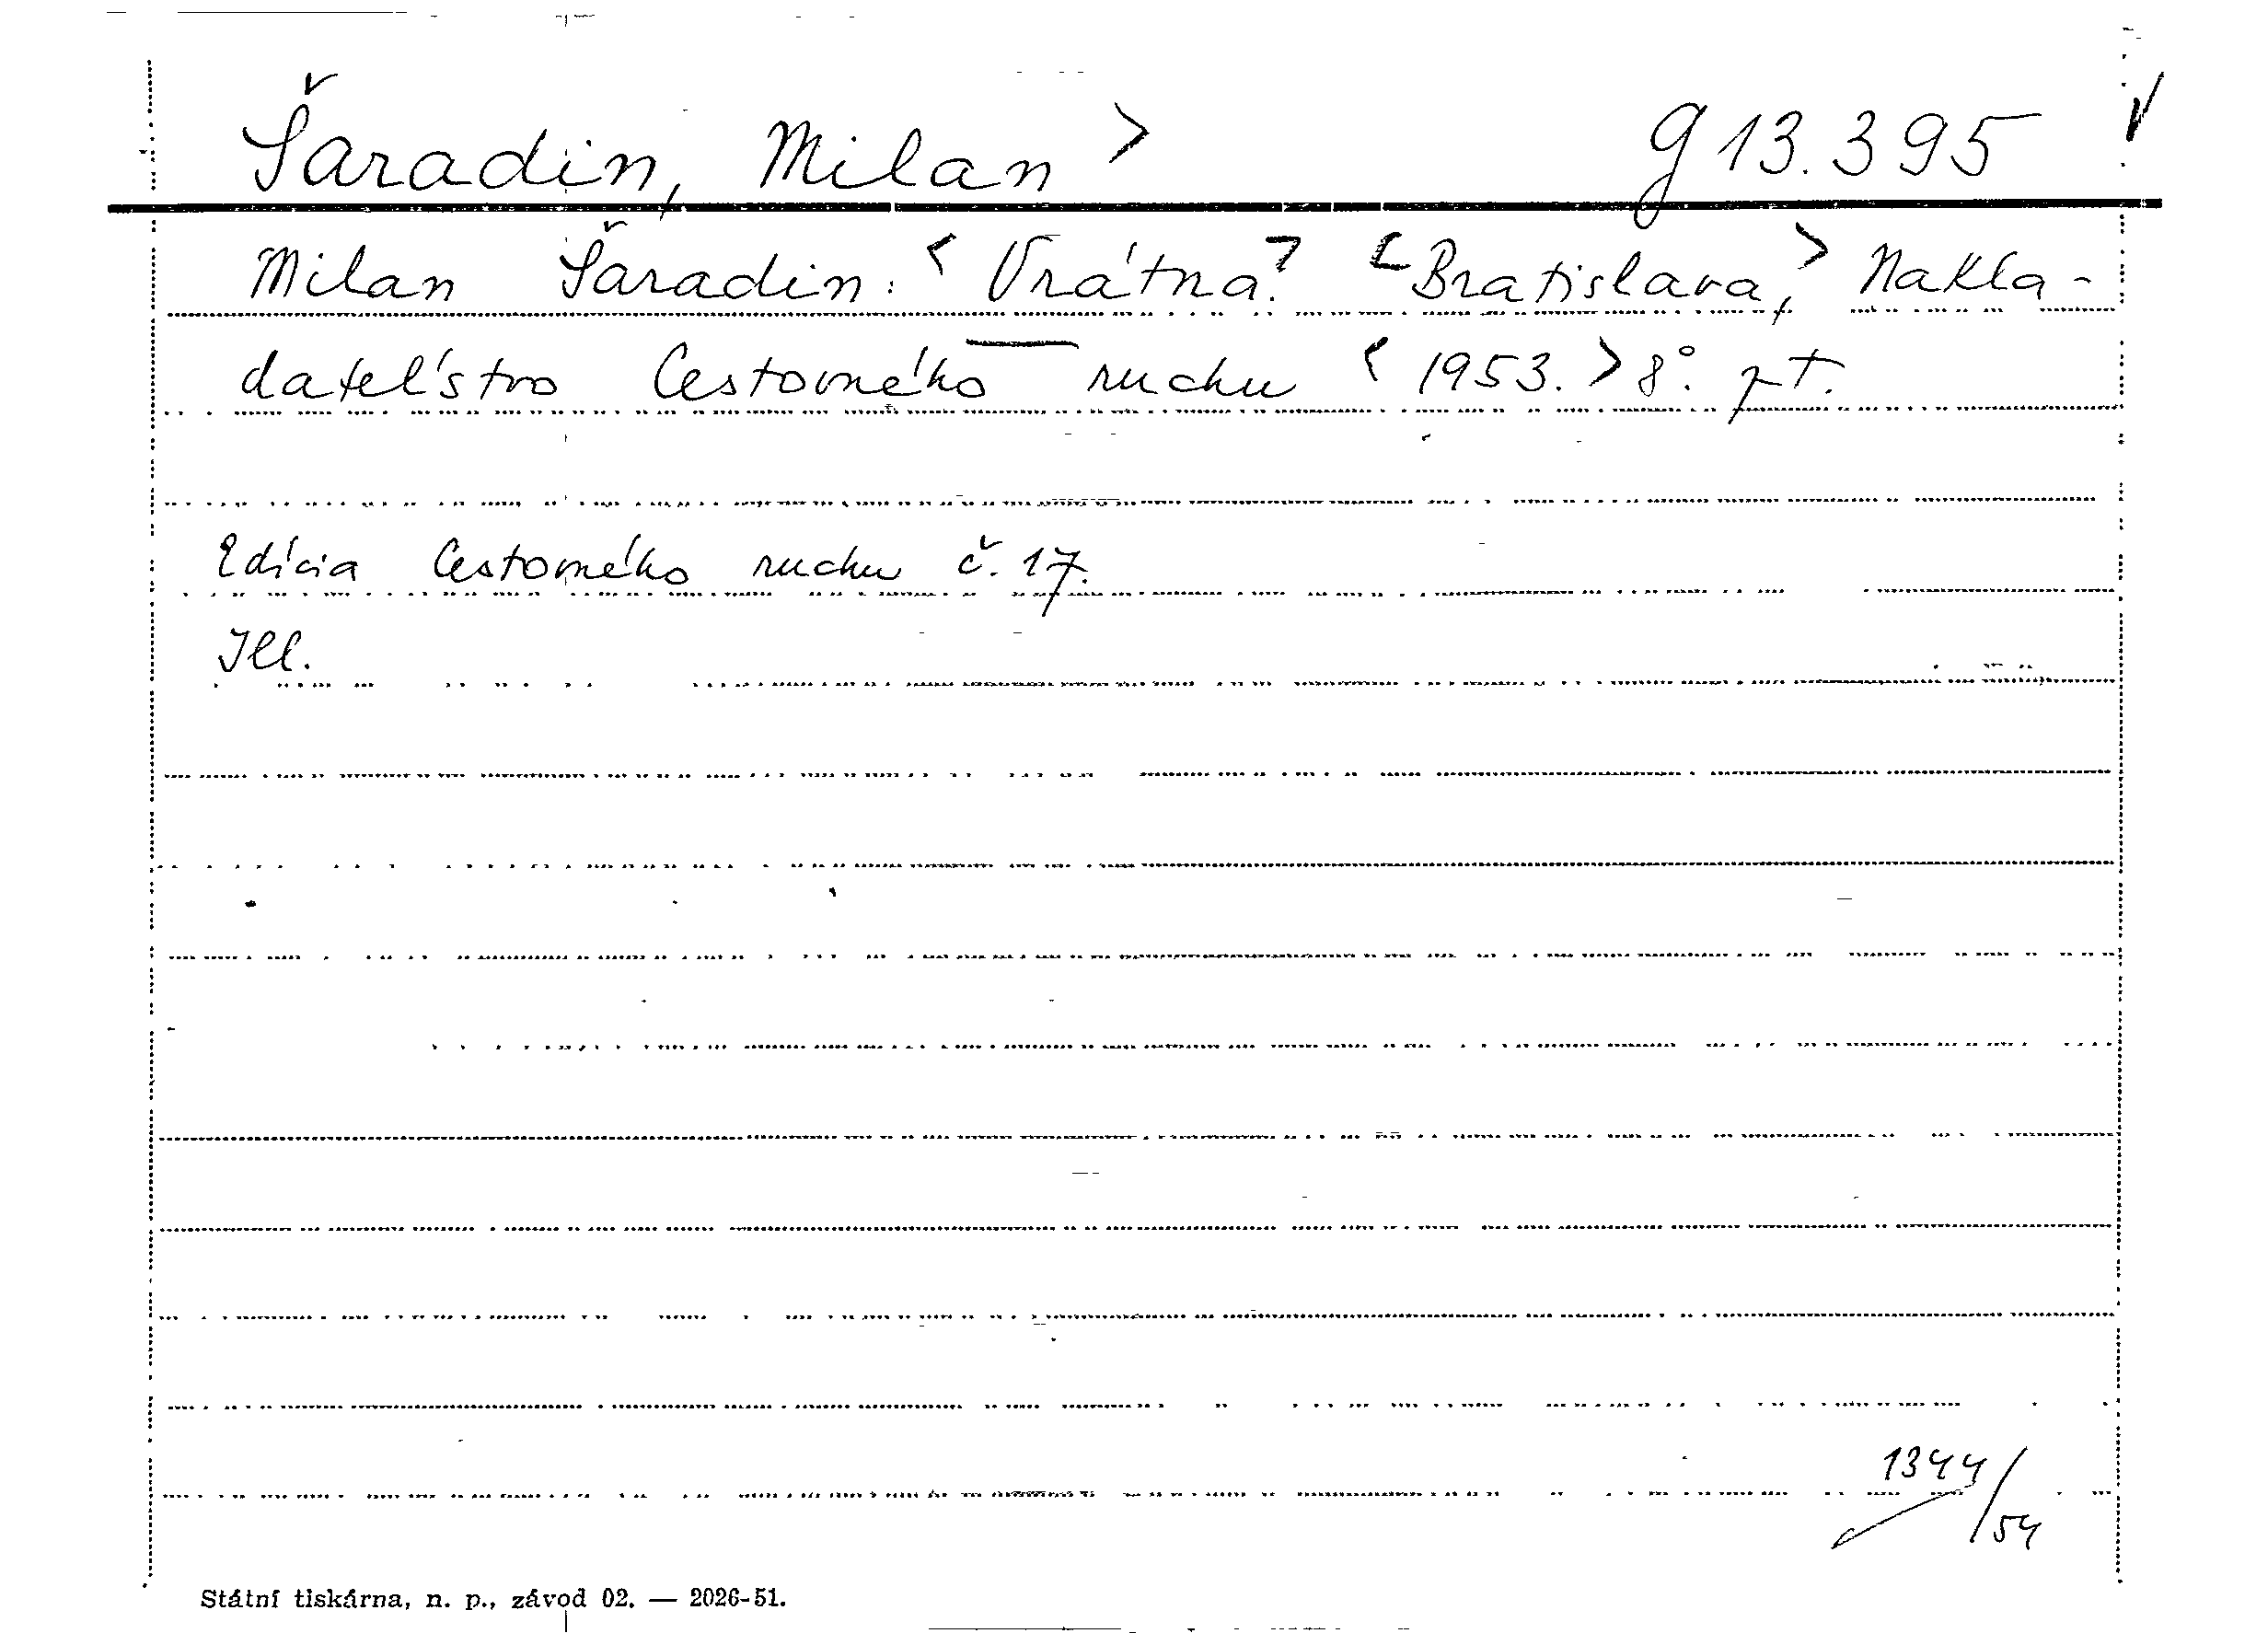 Šaradin, Milan > g 13.395 √
Milan Šaradin: < Vrátna. > < Bratislava, > Nakla-
dateľstvo Cestovného ruchu < 1953. > 8°. pt.
Edícia Cestovného ruchu č. 17.
Ill.
1344/54
Státní tiskárna, n. p., závod 02. — 2026-51.